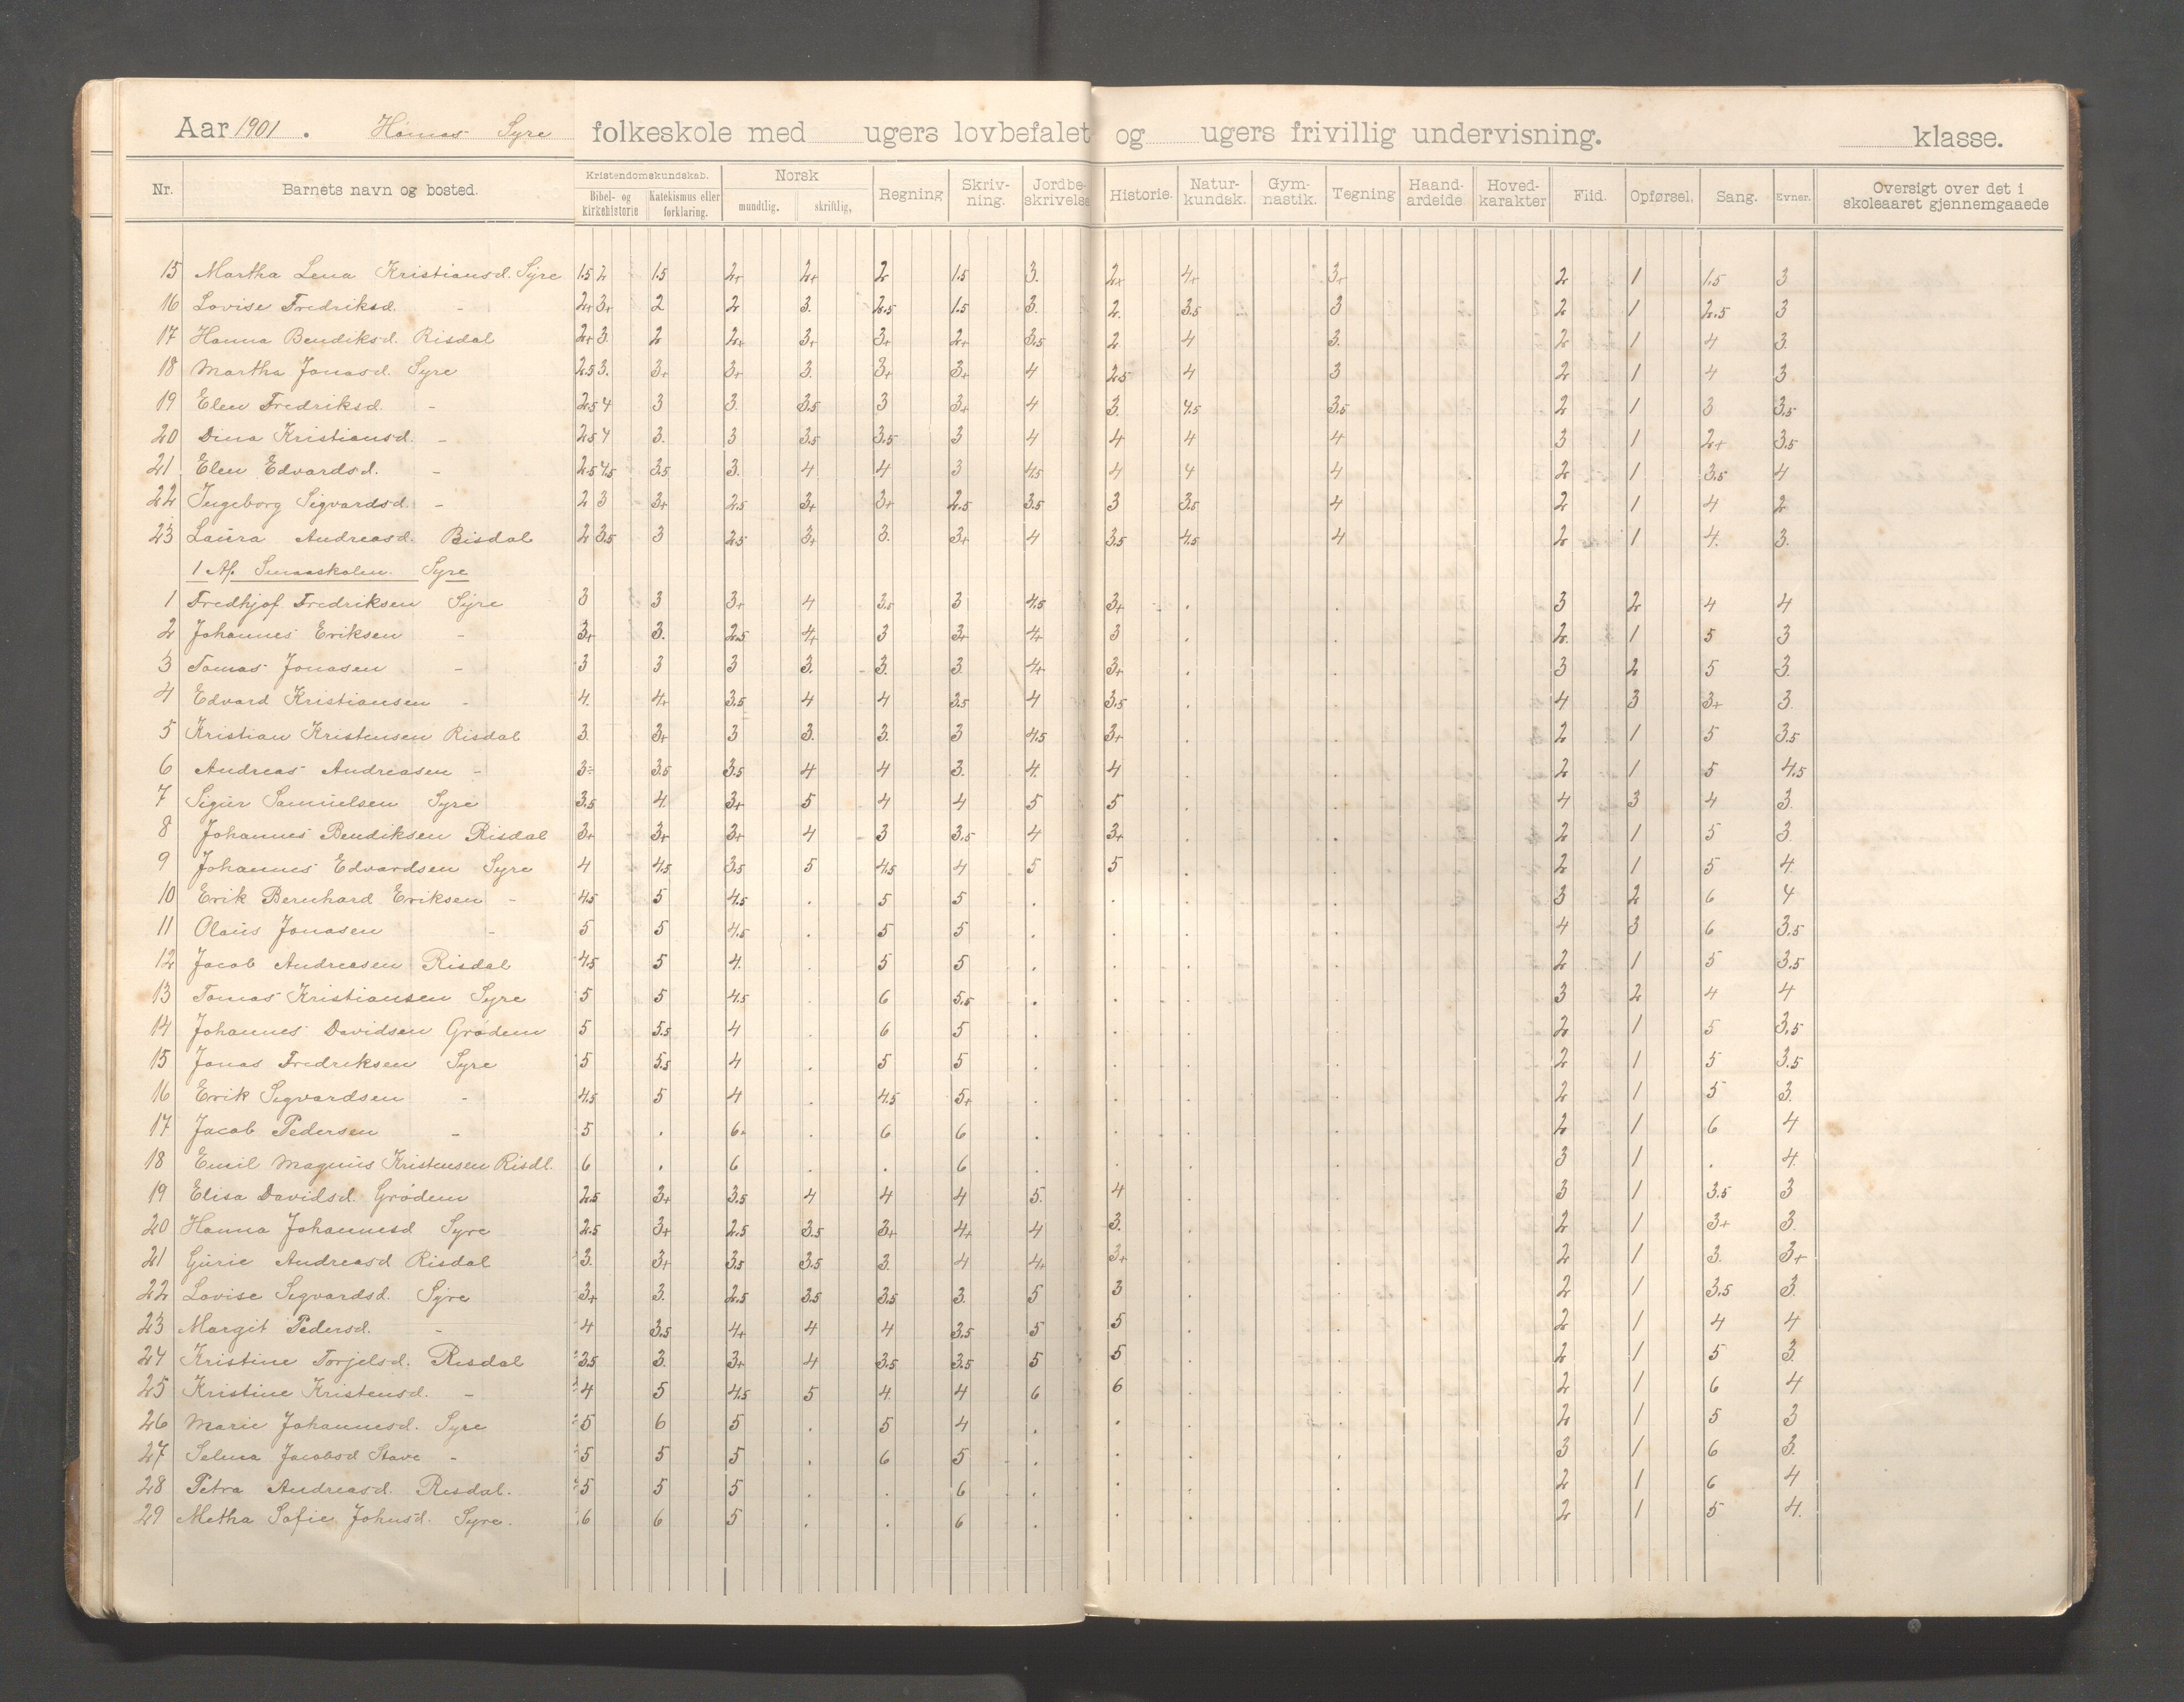 Aar 1901. Syre folkeskole med ugers lovbefalet og ugers frivillig undervisning. klasse.
Nr. Barnets navn og bosted. Kristendomskundskab. Bibel- og kirkehistorie Katekismus eller forklaring. Norsk mundtlig. skriftlig, Regning Skriv-ning. Jordbe-skrivelse Historie. Natur-kundsk. Gym-nastik. Tegning Haand-ardeide Hoved-karakter Flid. Opførsel. Sang. Evner. Oversigt over det i skoleaaret gjennemgaaede
15 Martha Lena Kristiansd. Syre 1.5 2 1.5 2+ 2+ 2 1.5 3. 2+ 4+ 3+ 2 1 1.5 3
16 Lovise Fredriksd. - 2+ 3+ 2 2 3. 2.5 1.5 3. 2. 3.5 3 2 1 2.5 3
17 Hanna Bendiksd. Risdal 2+ 3. 2 2+ 3+ 3+ 2+ 3.5 2 4 3. 2 1 4 3.
18 Martha Jonasd. Syre 2.5 3. 3+ 3+ 3. 3+ 3+ 4 2.5 4 3 2 1 4 3
19 Elen Fredriksd. - 2.5 4 3 3. 3.5 3 3+ 4 3. 4.5 3.5 2 1 3 3.5
20 Dina Kristiansd. - 2.5 4 3. 3 3.5 3.5 3 4 4 4 4 3 1 2+ 3.5
21 Elen Edvardsd. - 2.5 4.5 3.5 3. 4 4 3 4.5 4 4 4 2 1 3.5 4
22 Ingeborg Sigvardsd. - 2 3 3+ 2.5 3+ 3+ 2.5 3.5 3 3.5 4 2 1 4 2
23 Laura Andreasd. Risdal 2 3.5 3 2.5 3+ 3. 3+ 4 3.5 4.5 4 2 1 4. 3.
1 Af. Smaaskolen. Syre
1 Fredhjof Fredriksen Syre 3 3 3+ 4 3.5 3 4.5 3+ . . 3 2 4 4
2 Johannes Eriksen - 3+ 3. 2.5 4+ 3 3+ 4+ 3 . . 2. 1 5 3
3 Tomas Jonasen - 3 3 3 3. 3. 3. 4+ 3+ . . 3 2 5 3.
4 Edvard Kristiansen - 4. 4+ 3.5 4 4 3.5 4 3.5 . . 4 3 3+ 3
5 Kristian Kristensen Risdal 3. 3+ 3 3. 3. 3 4.5 3+ . . 2 1 5 3.5
6 Andreas Andreasen - 3÷ 3.5 3.5 4 4 3. 4. 4 . . 2 1 5 4.5
7 Sigur Samuelsen Syre 3.5 4. 3+ 5 4 4 5 5 . . 4 3 4 3.
8 Johannes Bendiksen Risdal 3+ 3+ 3+ 4 3 3.5 4 3+ . . 2 1 5 3
9 Johannes Edvardsen Syre 4 4.5 3.5 5 4.5 4 5 5 . . 2 1 5 4.
10 Erik Bernhard Eriksen - 4.5 5 4.5 . 5 5 . . . . 3 2 6 4
11 Olaus Jonasen - 5 5 4.5 . 5 5 . . . . 4 3 6 3.5
12 Jacob Andreasen Risdal 4.5 5 4. . 5 5 . . . . 2 1 5 3.5
13 Tomas Kristiansen Syre 5 5 4.5 . 6 5.5 . . . . 3 2 4 4
14 Johannes Davidsen Grødem 5 5.5 4 . 6 5 . . . . 2 1 5 3.5
15 Jonas Fredriksen Syre 5 5.5 4 . 5 5 . . . . 2 1 5 3.5
16 Erik Sigvardsen - 4.5 5 4 . 4.5 5+ . . . . 2 1 5 3.
17 Jacob Pedersen - 5 . 6. . 6 6 . . . . 2 1 6 4
18 Emil Magnus Kristensen Risdl. 6 . 6 . . 6 . . . . 3 1 . 4.
19 Elisa Davidsd. Grødem 2.5 3+ 3.5 4 4 4 5. 4 . . 3 1 3.5 3
20 Hanna Johannesd Syre 2.5 3+ 2.5 3.5 3+ 4+ 4 3. . . 2 1 3+ 3.
21 Gurie Andreasd Risdal 3. 3+ 3.5 3.5 3. 4 4+ 3+ . . 2 1 3. 3+
22 Lovise Sigvardsd. Syre 3+ 3. 2.5 3.5 3.5 3. 5 3 . . 2 1 3.5 3.
23 Margit Pedersd. - 4 3.5 4+ 4 4 3.5 5 5 . . 2 1 4 4
24 Kristine Torjelsd. Risdal 3.5 3. 3+ 4 3.5 3.5 5 5 . . 2 1 5 3.
25 Kristine Kristensd. - 4 5 4.5 5 4. 4 6 6 . . 2 1 6 4
26 Marie Johannesd. Syre 5 6 5 . 5 4 . . . . 2 1 5 3
27 Selma Jacobsd Stave - 5 5 5 . 6 5 . . . . 3 1 6 3.
28 Petra Andreasd. Risdal. 5 5 5 . . 6 . . . . 2 1 6 4
29 Metha Sofie Johnsd. Syre. 6 6 5 . . 6 . . . . 2 1 5 4.